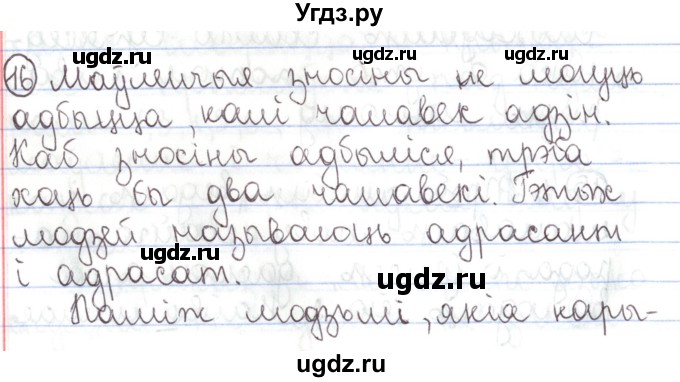 Угдз.ру
ugdz.ru ugdz.ru
16 Маўленчыя зносіны не могуць
адбыцца, калі чалавек адзін.
ugdz.ru ugdz.ru
Каб зносіны адбыліся, трэба
хоць бы два чалавекі. Гэтых
людзей называюць адрасант
ugdz.ru ugdz.ru
і адрасат.
ugdz.ru
Паміж людзьмі, якія кары-
ugdz.ru